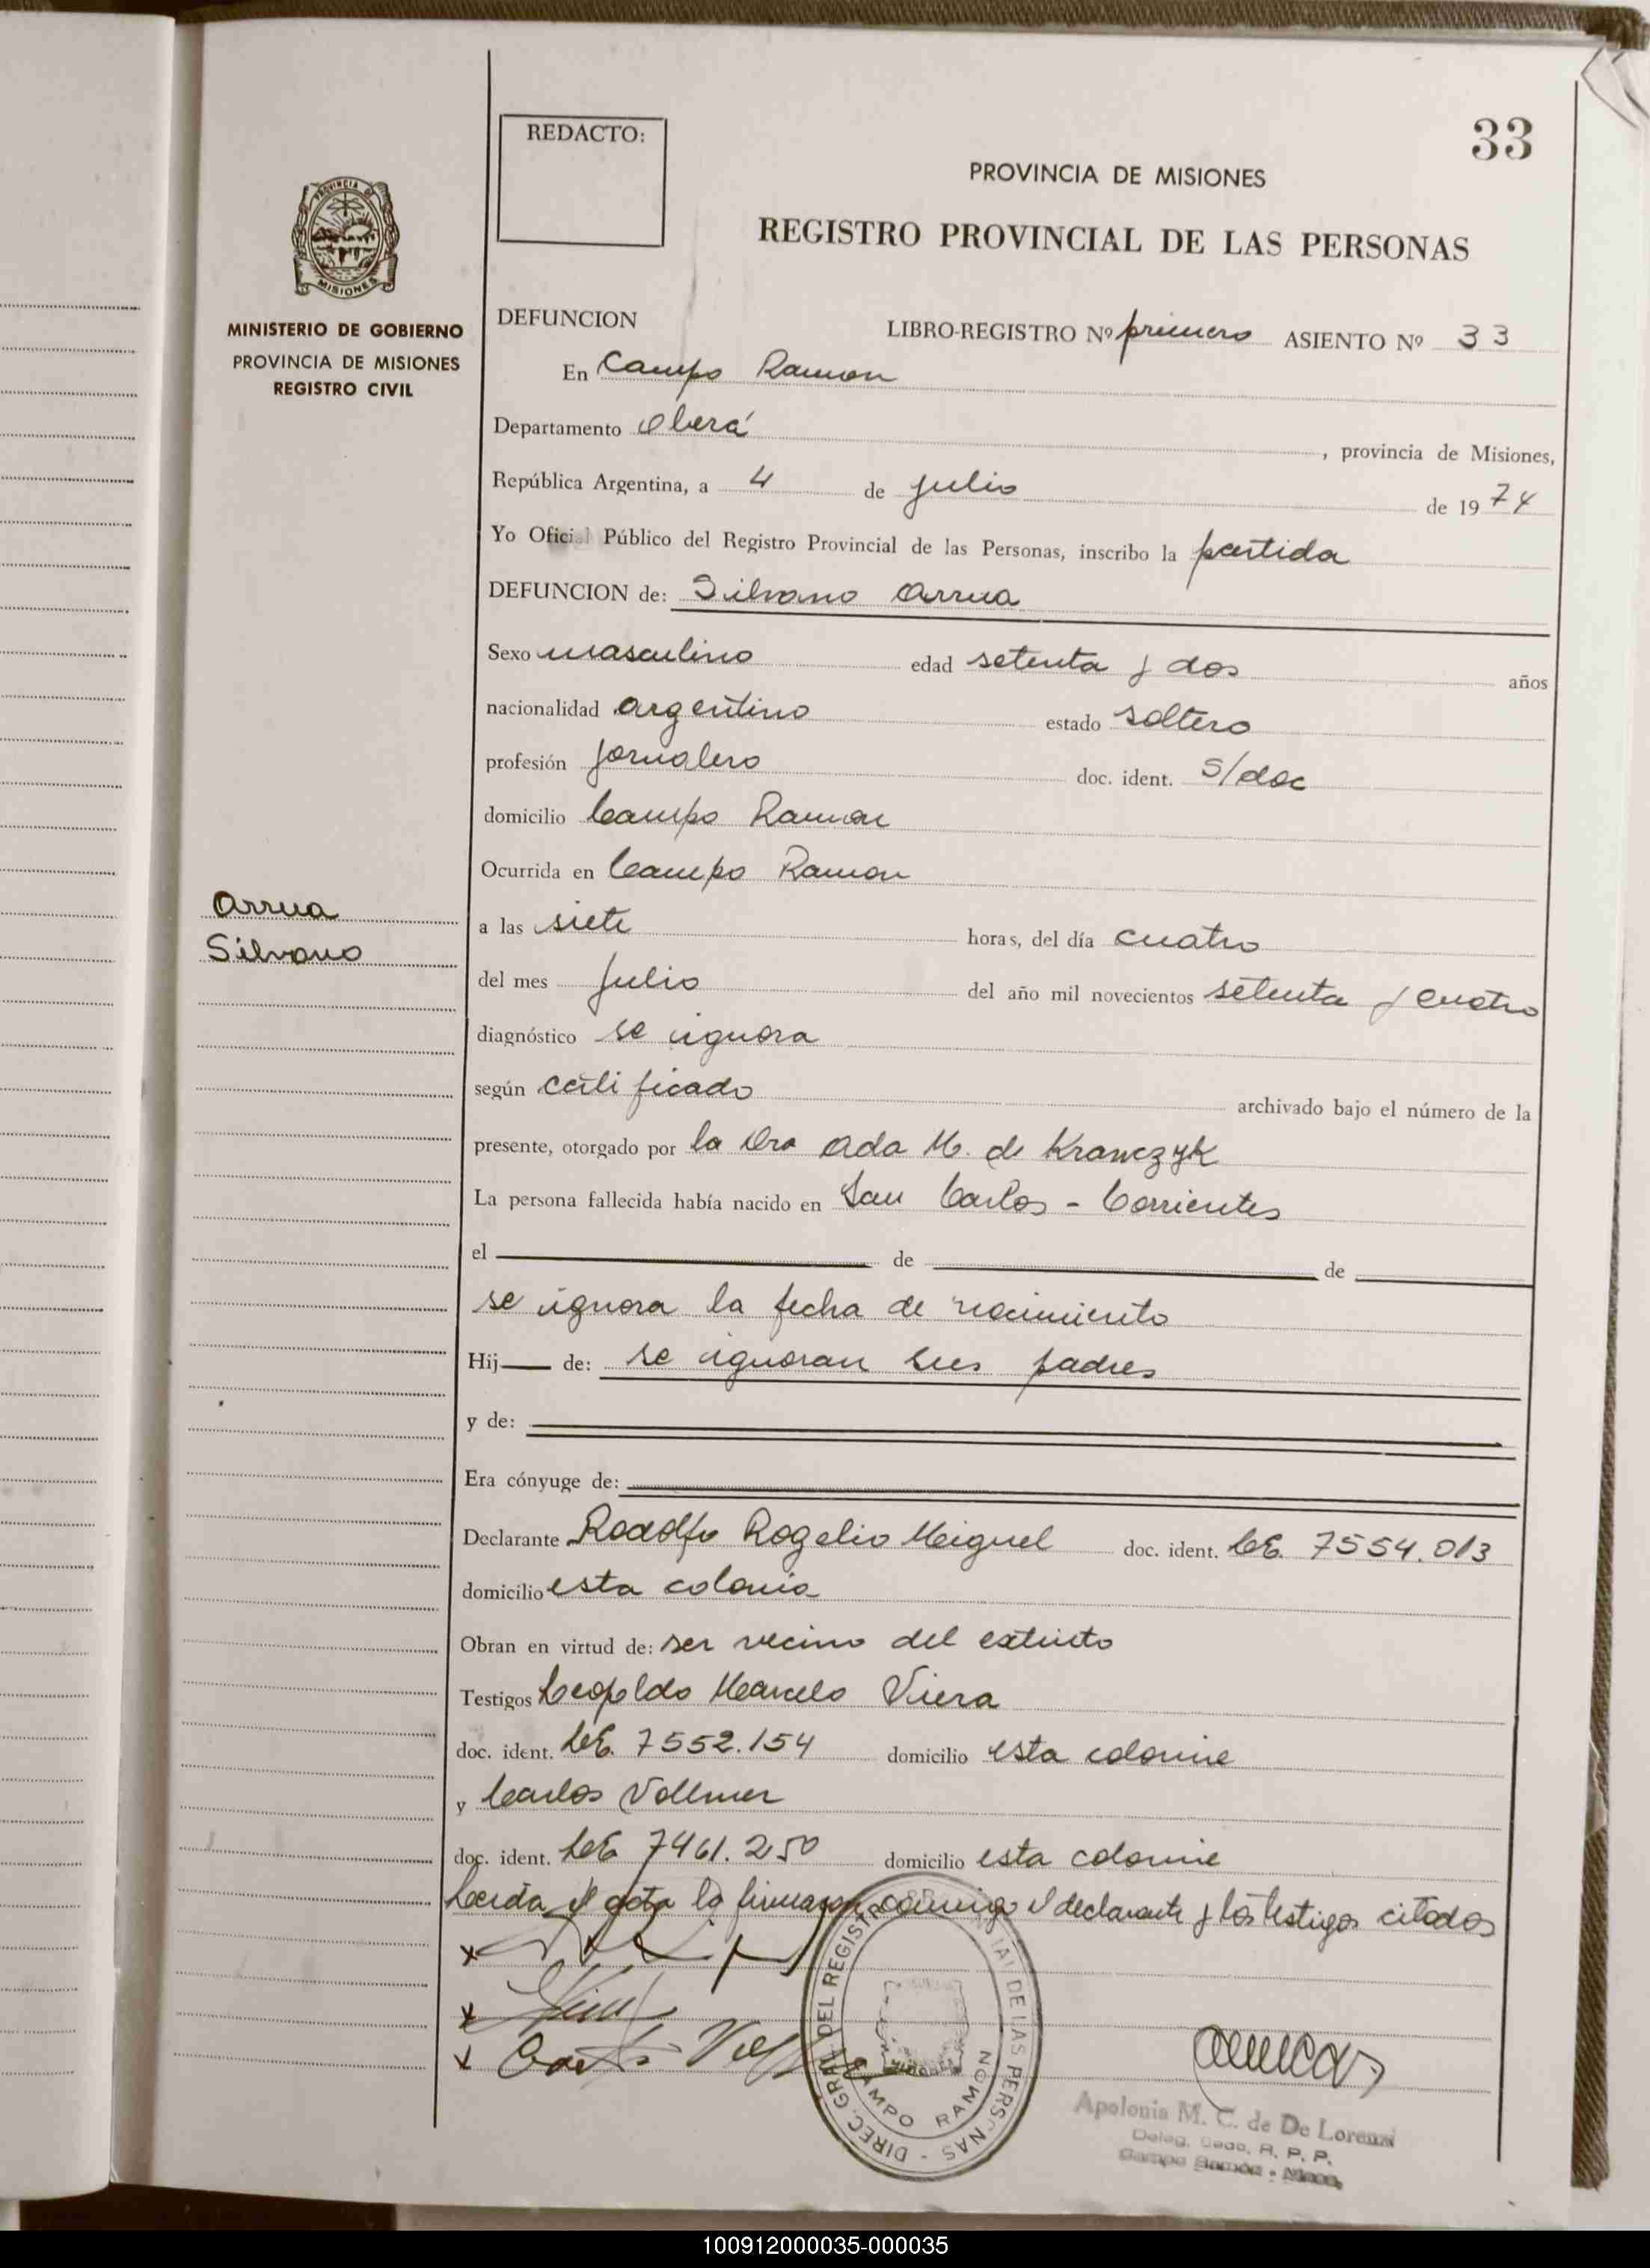 33
REDACTO:
PROVINCIA DE MISIONES
REGISTRO PROVINCIAL DE LAS PERSONAS
PROVINCIA DE
MISIONES
MINISTERIO DE GOBIERNO
PROVINCIA DE MISIONES
REGISTRO CIVIL
DEFUNCION LIBRO-REGISTRO Nº primero ASIENTO Nº 33
En Campo Ramon
Departamento Oberá, provincia de Misiones,
República Argentina, a 4 de julio de 1974
Yo Oficial Público del Registro Provincial de las Personas, inscribo la partida
DEFUNCION de: Silvano Arrua
Sexo masculino edad setenta y dos años
nacionalidad argentino estado soltero
profesión jornalero doc. ident. s/doc
domicilio Campo Ramon
Ocurrida en Campo Ramon
Arrua
Silvano
a las siete horas, del día cuatro
del mes julio del año mil novecientos setenta y cuatro
diagnóstico se ignora
según certificado archivado bajo el número de la
presente, otorgado por la Dra Ada M. de Krawczyk
La persona fallecida había nacido en San Carlos - Corrientes
el de de
se ignora la fecha de nacimiento
Hij de: se ignoran sus padres
y de:
Era cónyuge de:
Declarante Rodolfo Rogelio Meiguel doc. ident. LE. 7554.013
domicilio esta colonia
Obran en virtud de: ser vecino del extinto
Testigos Leopoldo Marcelo Viera
doc. ident. LE. 7552.154 domicilio esta colonia
y Carlos Vollmer
doc. ident. LE 7461.250 domicilio esta colonia
Leida el acta la firmaron conmigo el declarante y los testigos citados
x
x
x
DIREC. GRAL. DEL REGISTRO DE LAS PERSONAS
CAMPO RAMON
Apolonia M. C. de De Lorenzi
Deleg. R. P. P.
Campo Ramón - Mnes.
100912000035-000035